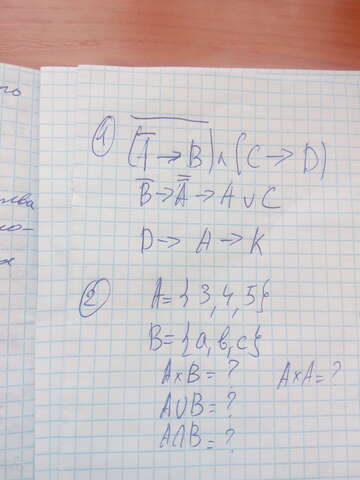 го
1) (A̅ → B)̅ ∧ (C → D)
B̅ → A̿ → A ∪ C
D → A → K
2) A = {3, 4, 5}
B = {a, в, c}
A×B = ? A×A = ?
A∪B = ?
A∩B = ?